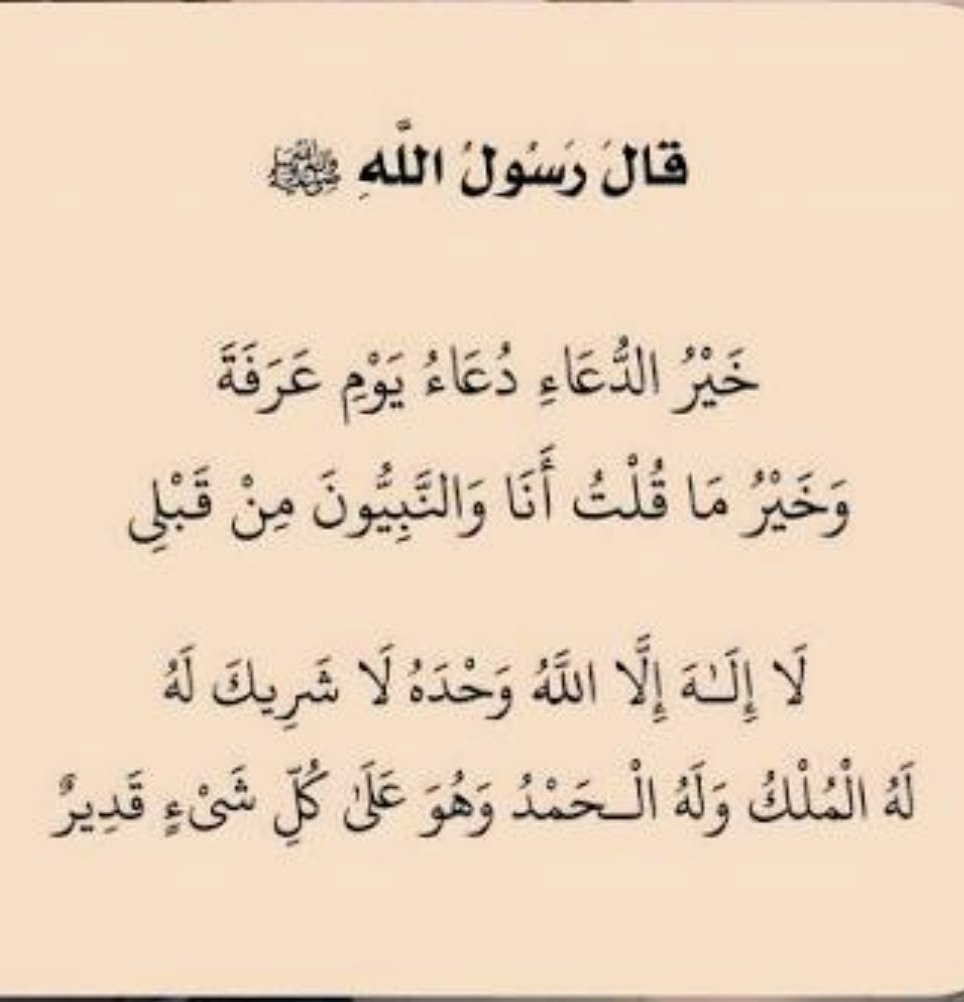 قَالَ رَسُولُ اللَّهِ ﷺ
خَيْرُ الدُّعَاءِ دُعَاءُ يَوْمِ عَرَفَةَ
وَخَيْرُ مَا قُلْتُ أَنَا وَالنَّبِيُّونَ مِنْ قَبْلِي
لَا إِلَـٰهَ إِلَّا اللَّهُ وَحْدَهُ لَا شَرِيكَ لَهُ
لَهُ الْمُلْكُ وَلَهُ الْـحَمْدُ وَهُوَ عَلَىٰ كُلِّ شَىْءٍ قَدِيرٌ